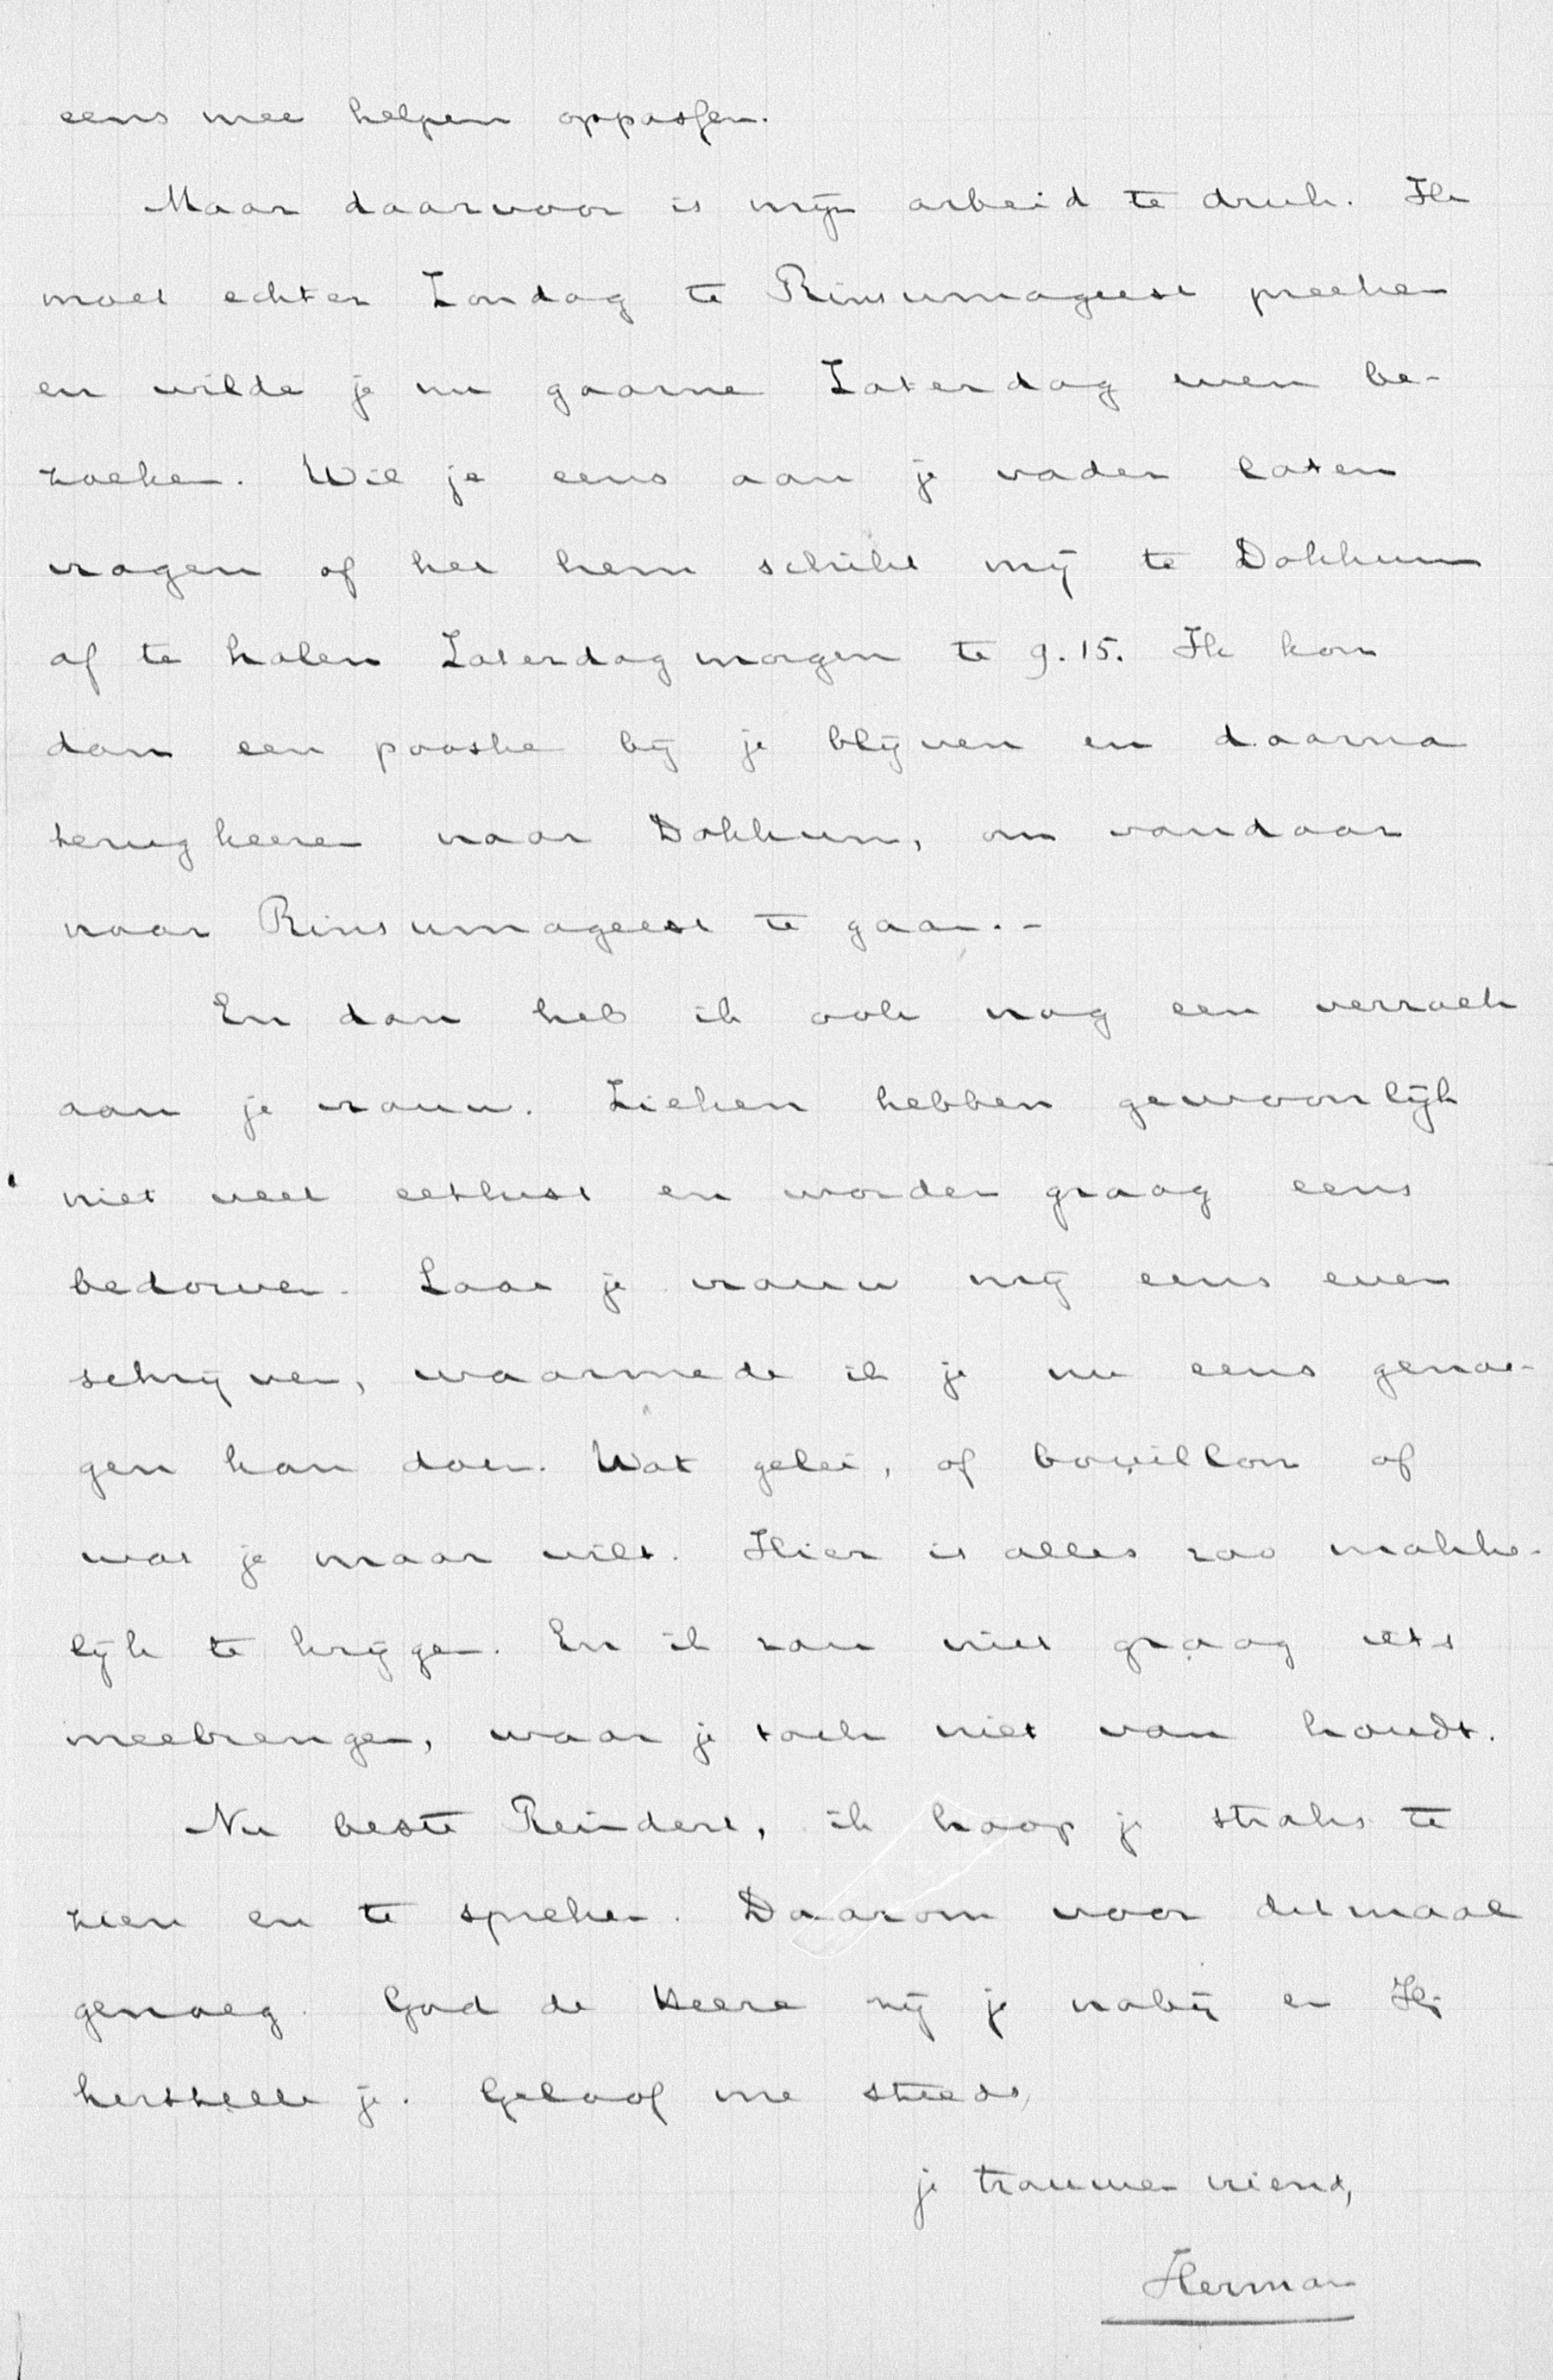 eens mee helpen oppassen.
Maar daarvoor is mijn arbeid te druk. Ik
moet echter Zondag te Rinsumageest preeken
en wilde je nu gaarne Zaterdag even be-
zoeken. Wil je eens aan je vader laten
vragen of het hem schikt mij te Dokkum
af te halen Zaterdagmorgen te 9.15. Ik kan
dan een pooske bij je blijven en daarna
terugkeeren naar Dokkum, om vandaar
naar Rinsumageest te gaan.-
En dan heb ik ook nog een verzoek
aan je vrouw. Zieken hebben gewoonlijk
niet veel eetlust en worden graag eens
bedorven. Laat je vrouw mij eens even
schrijven, waarmede ik je nu eens genoe-
gen kan doen. Wat gelei, of bouillon of
wat je maar wilt. Hier is alles zoo makke-
lijk te krijgen. En ik zou niet graag iets
meebrengen, waar je toch niet van houdt.
Nu beste Reindert, ik hoop je straks te
zien en te spreken. Daarom voor ditmaal
genoeg. God de Heere zij je nabij en Hij
herstelle je. Geloof me steeds,
je trouwe vriend,
Herman